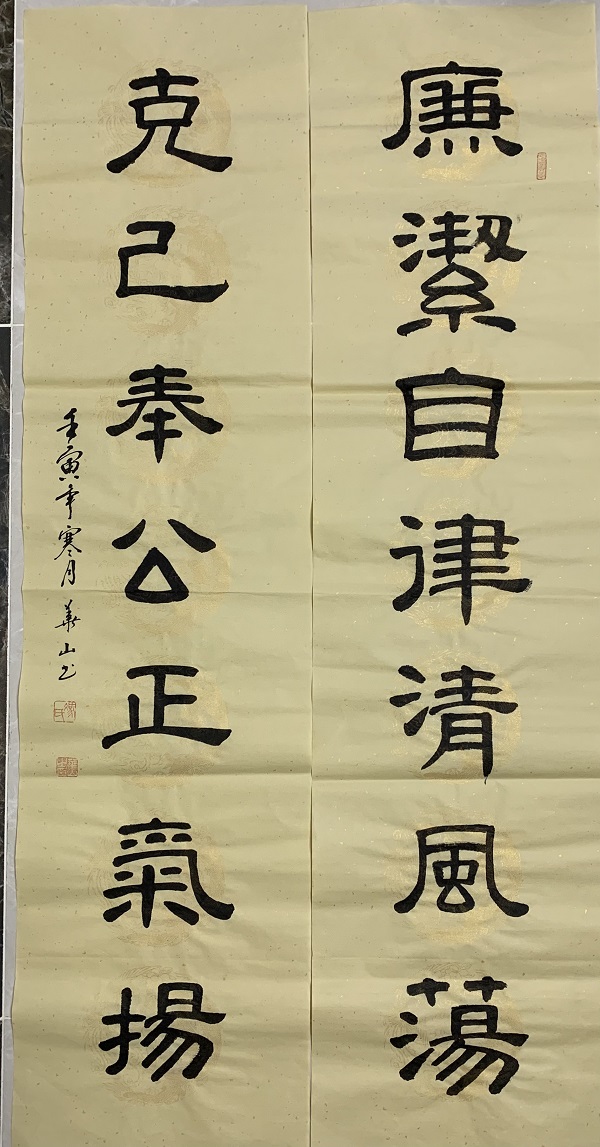 廉潔自律清風蕩
克己奉公正氣揚
壬寅年寒月 華山书